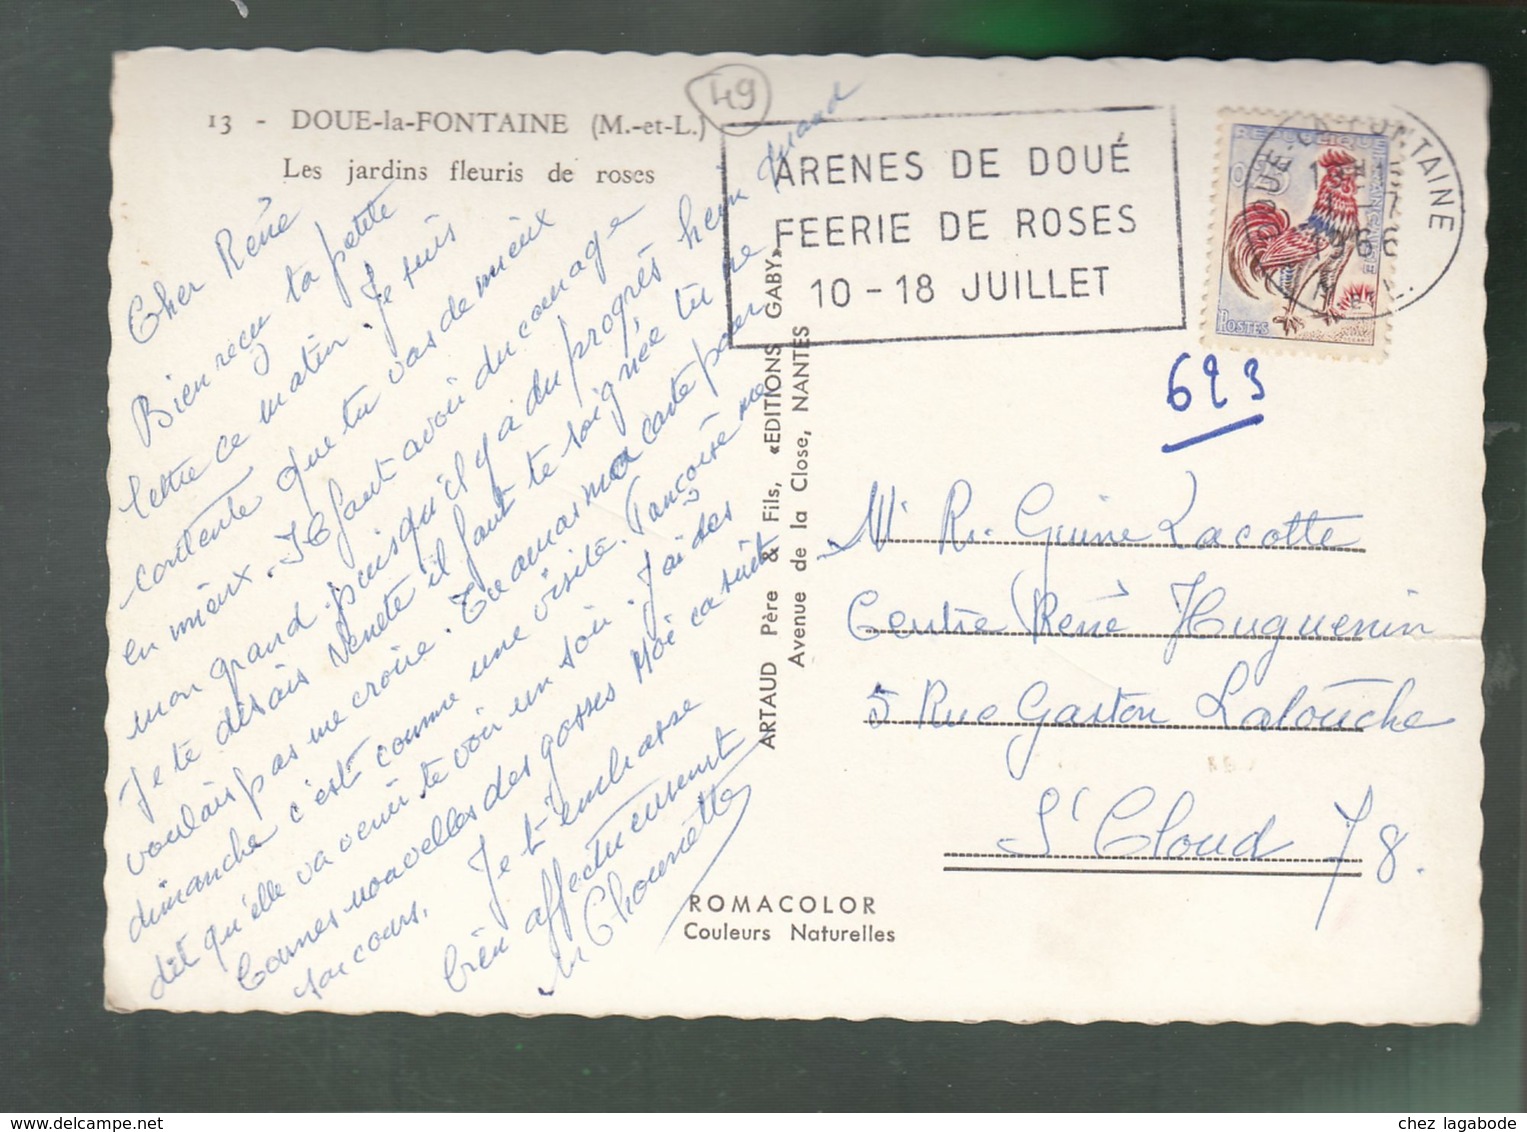 13 - DOUE-la-FONTAINE (M.-et-L.)
Les jardins fleuris de roses
49
ARENES DE DOUÉ
FEERIE DE ROSES
10 - 18 JUILLET
REPUBLIQUE FRANÇAISE
POSTES
623
Cher René
Bien reçu ta petite
lettre ce matin. Je suis
contente que tu vas de mieux
en mieux. Il faut avoir du courage
mon grand puisqu'il y a du progrès hein quand
Je te disais il faut te soignée tu ne
voulais pas me croire. Tu auras ma carte pour
dimanche c'est comme une visite.
dit qu'elle va venir te voir un soir. J'ai des
bonnes nouvelles des gosses Moi ca suit
son cours. Je t'embrasse
bien affectueusement
ARTAUD Père & Fils, «EDITIONS GABY»
Avenue de la Close, NANTES
ROMACOLOR
Couleurs Naturelles
Mr R. Guine Lacotte
Centre René Huguenin
5 Rue Gaston Latouche
St Cloud 78.
chez lagabode